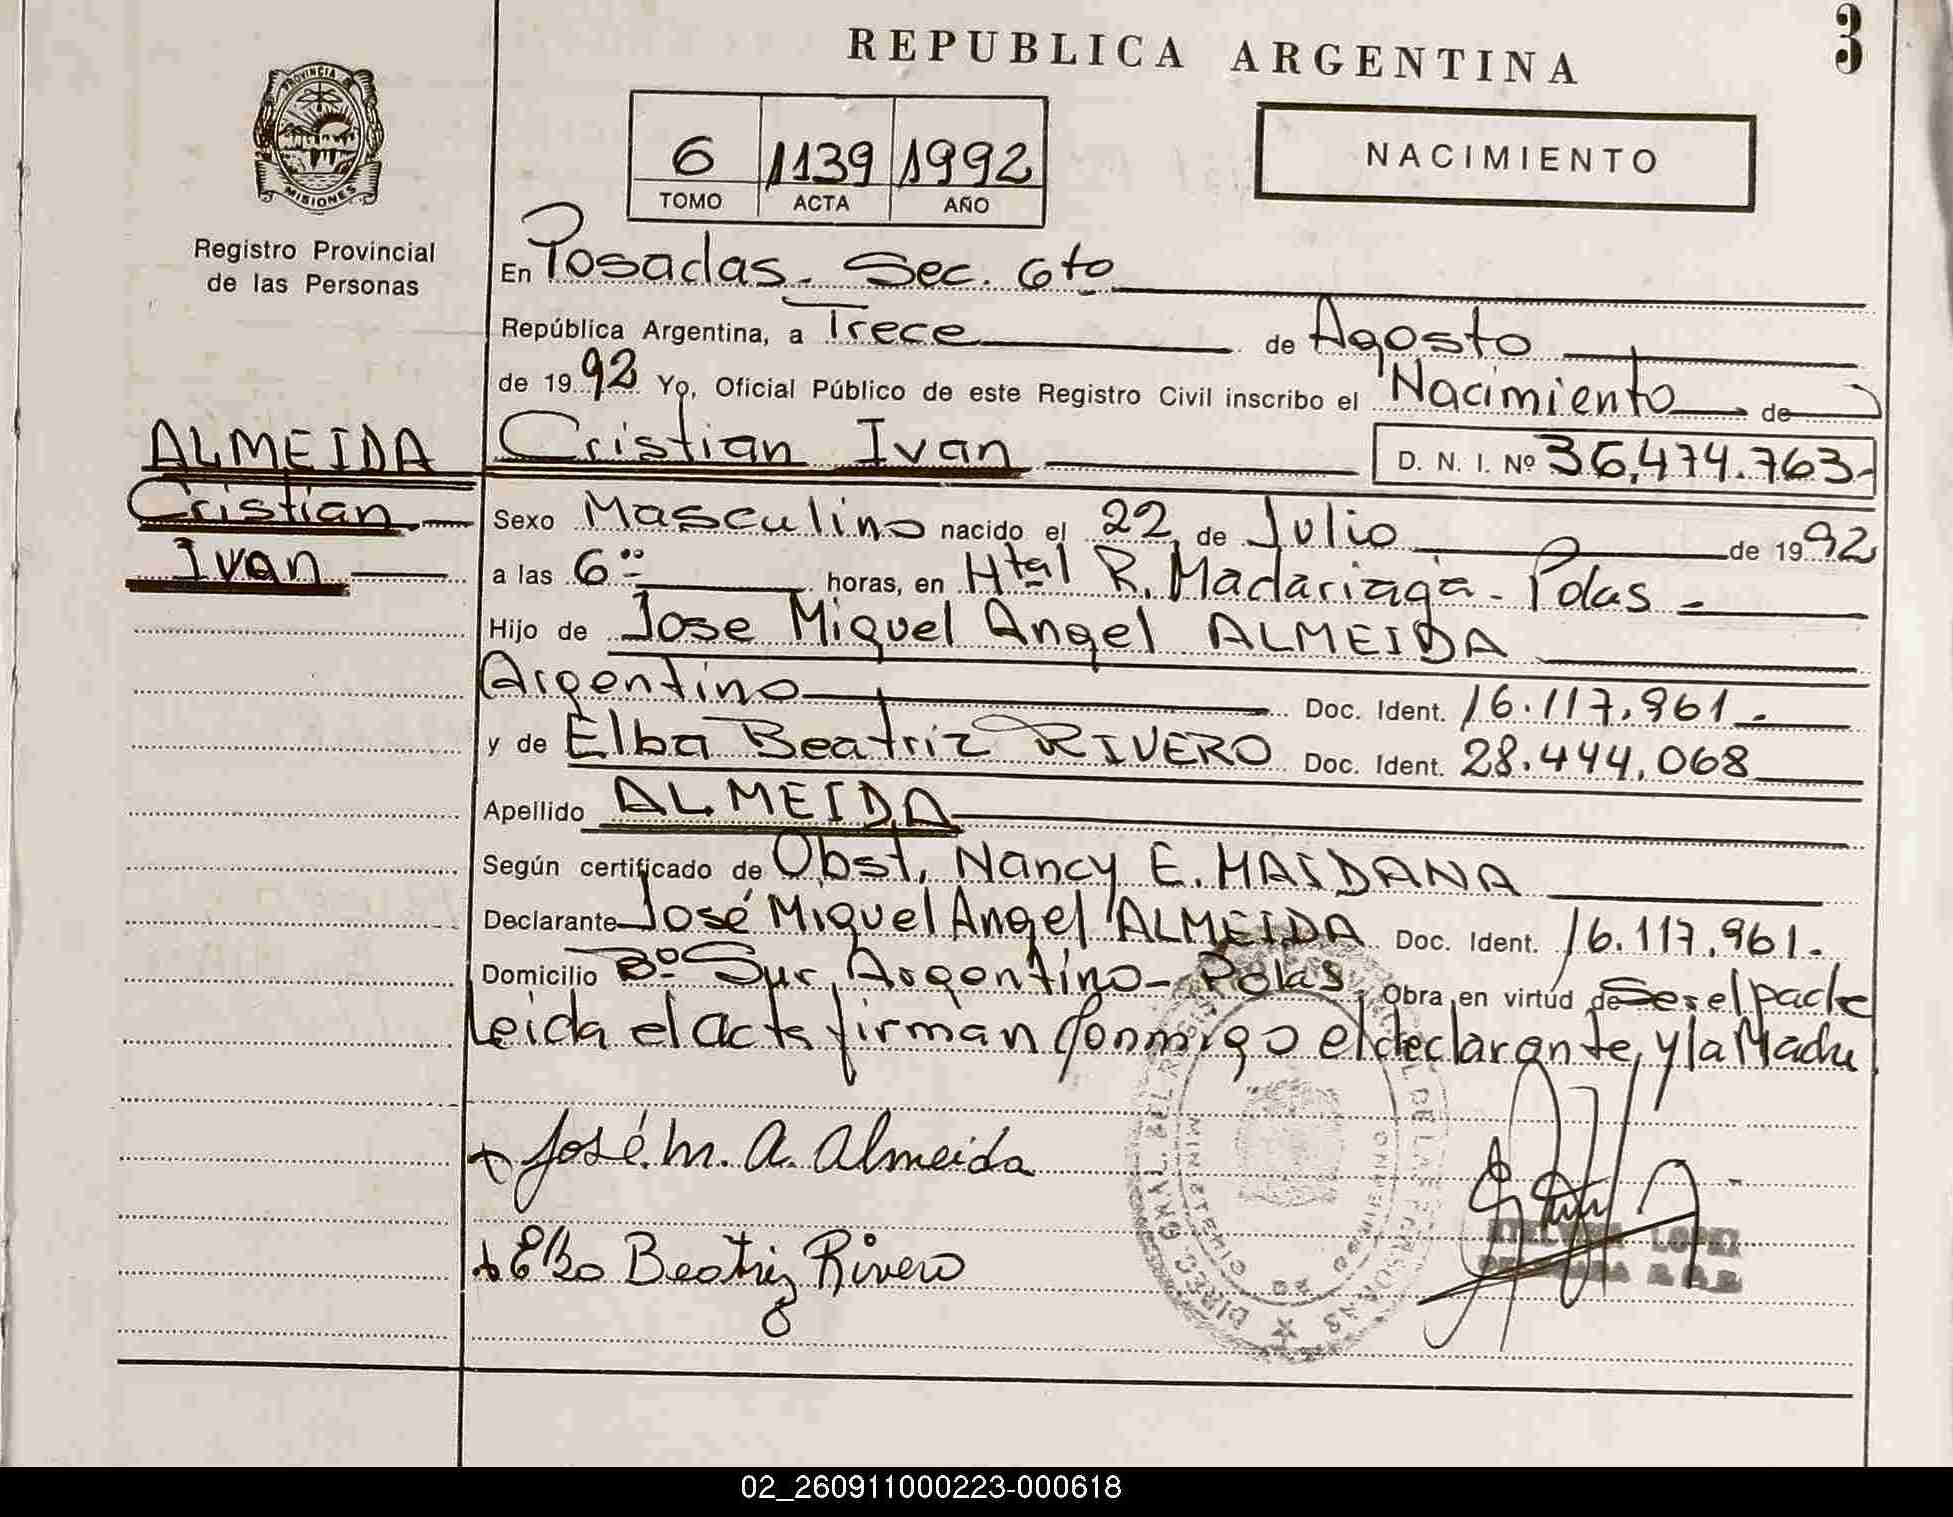 REPUBLICA ARGENTINA
3
PROVINCIA DE
MISIONES
Registro Provincial
de las Personas
6 1139 1992
TOMO ACTA AÑO
NACIMIENTO
En Posadas - Sec. 6to
República Argentina, a Trece de Agosto
de 19 92 Yo, Oficial Público de este Registro Civil inscribo el Nacimiento de
ALMEIDA
Cristian
Ivan
Cristian Ivan D. N. I. Nº 36,474.763-
Sexo Masculino nacido el 22 de Julio de 19 92
a las 6.00 horas, en Htal R. Madariaga - Pdas -
Hijo de Jose Miguel Angel ALMEIDA
Argentino Doc. Ident. 16.117,961 -
y de Elba Beatriz RIVERO Doc. Ident. 28.444,068
Apellido ALMEIDA
Según certificado de Obst, Nancy E. MAIDANA
Declarante José Miguel Angel ALMEIDA Doc. Ident. 16.117,961.
Domicilio Bº Sur Argentino - Pdas, Obra en virtud de Ser el padre
Leida el Acta firman Conmigo el declarante, y la Madre
José. M. A. Almeida
Elba Beatriz Rivero
LOPEZ
02_260911000223-000618